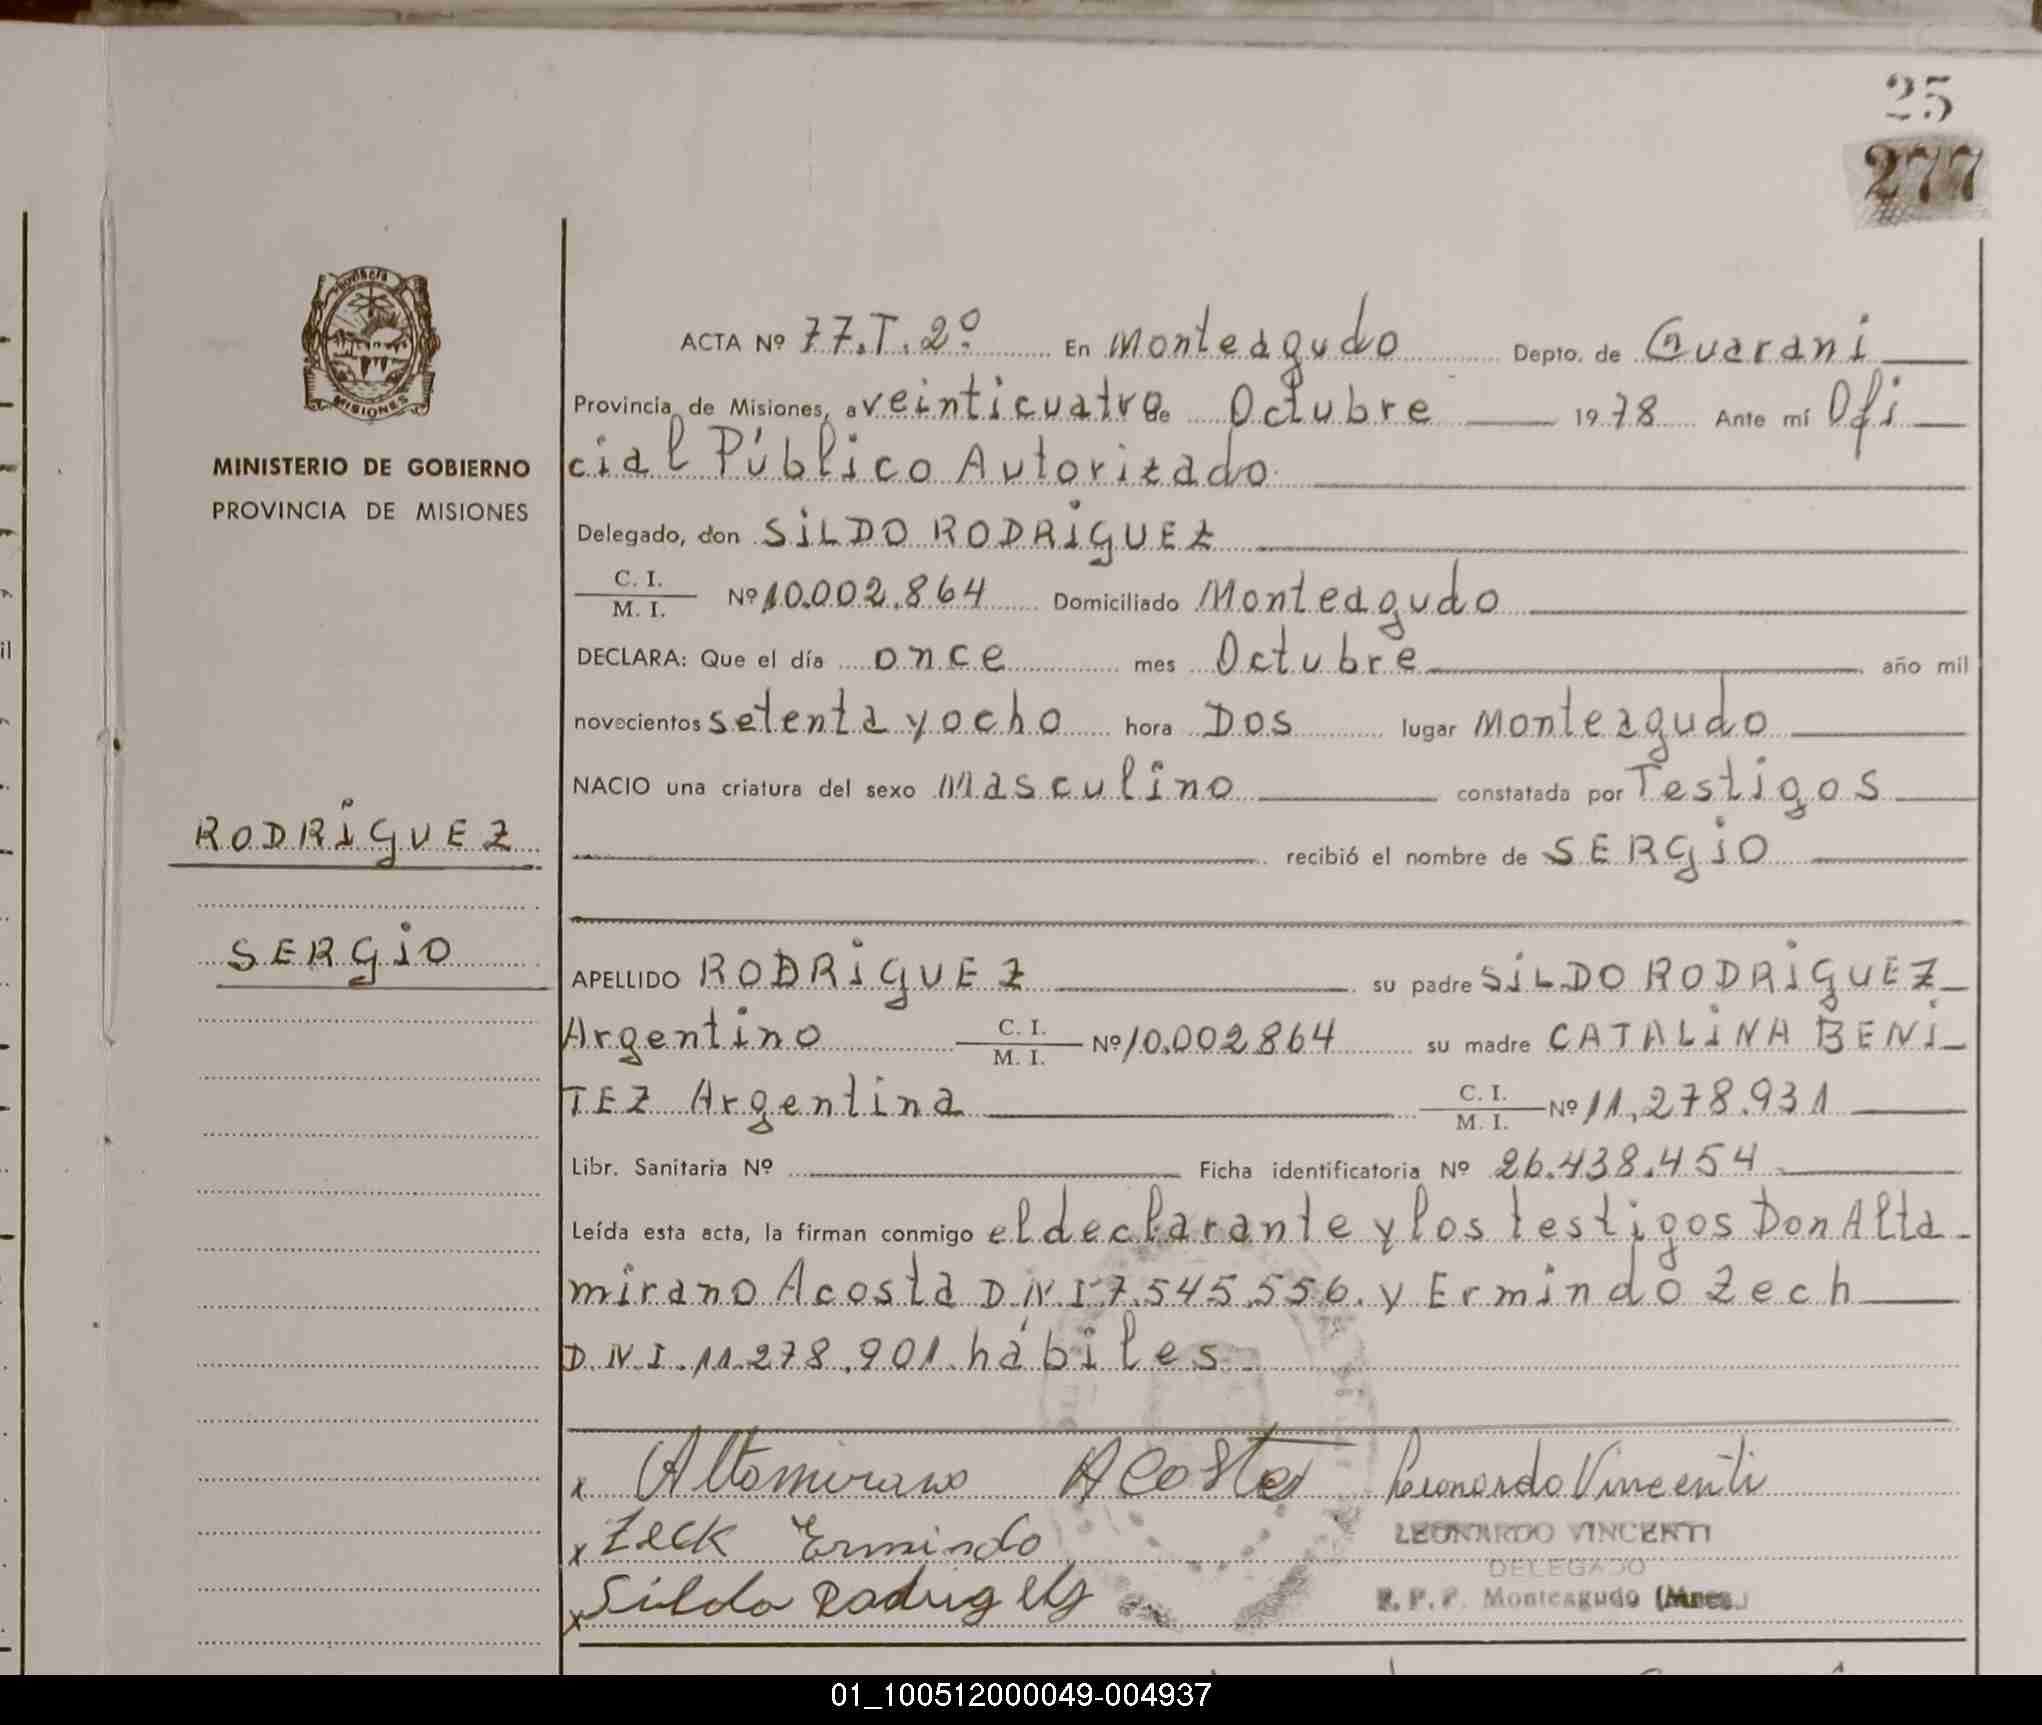 25
277
Provincia
MISIONES
MINISTERIO DE GOBIERNO
PROVINCIA DE MISIONES
RODRiGUEZ
SERGiO
ACTA Nº 77.T.2º En Monteagudo Depto. de Guarani
Provincia de Misiones, a veinticuatro de Octubre 1978 Ante mí Ofi
cial Público Autorizado
Delegado, don SiLDO RODRiGUEZ
C. I.
M. I. Nº 10.002.864 Domiciliado Monteagudo
DECLARA: Que el día once mes Octubre año mil
novecientos setenta y ocho hora Dos lugar Monteagudo
NACIO una criatura del sexo Masculino constatada por Testigos
recibió el nombre de SERGiO
APELLIDO RODRiGUEZ su padre SiLDO RODRiGUEZ
Argentino C. I. M. I. Nº 10.002864 su madre CATALiNA BENi
TEZ Argentina C. I. M. I. Nº 11,278.931
Libr. Sanitaria Nº Ficha identificatoria Nº 26.438.454
Leída esta acta, la firman conmigo el declarante y los testigos Don Alta
mirano Acosta D.N.I 7.545.556. y Ermindo Zech
D.N.I. 11.278.901. hábiles
x Altamirano Acosta Leonardo Vincenti
x Zeck Ermindo LEONARDO VINCENTI
DELEGADO
x Sildo Rodrig R. P. P. Monteagudo (Mnes.)
01_100512000049-004937